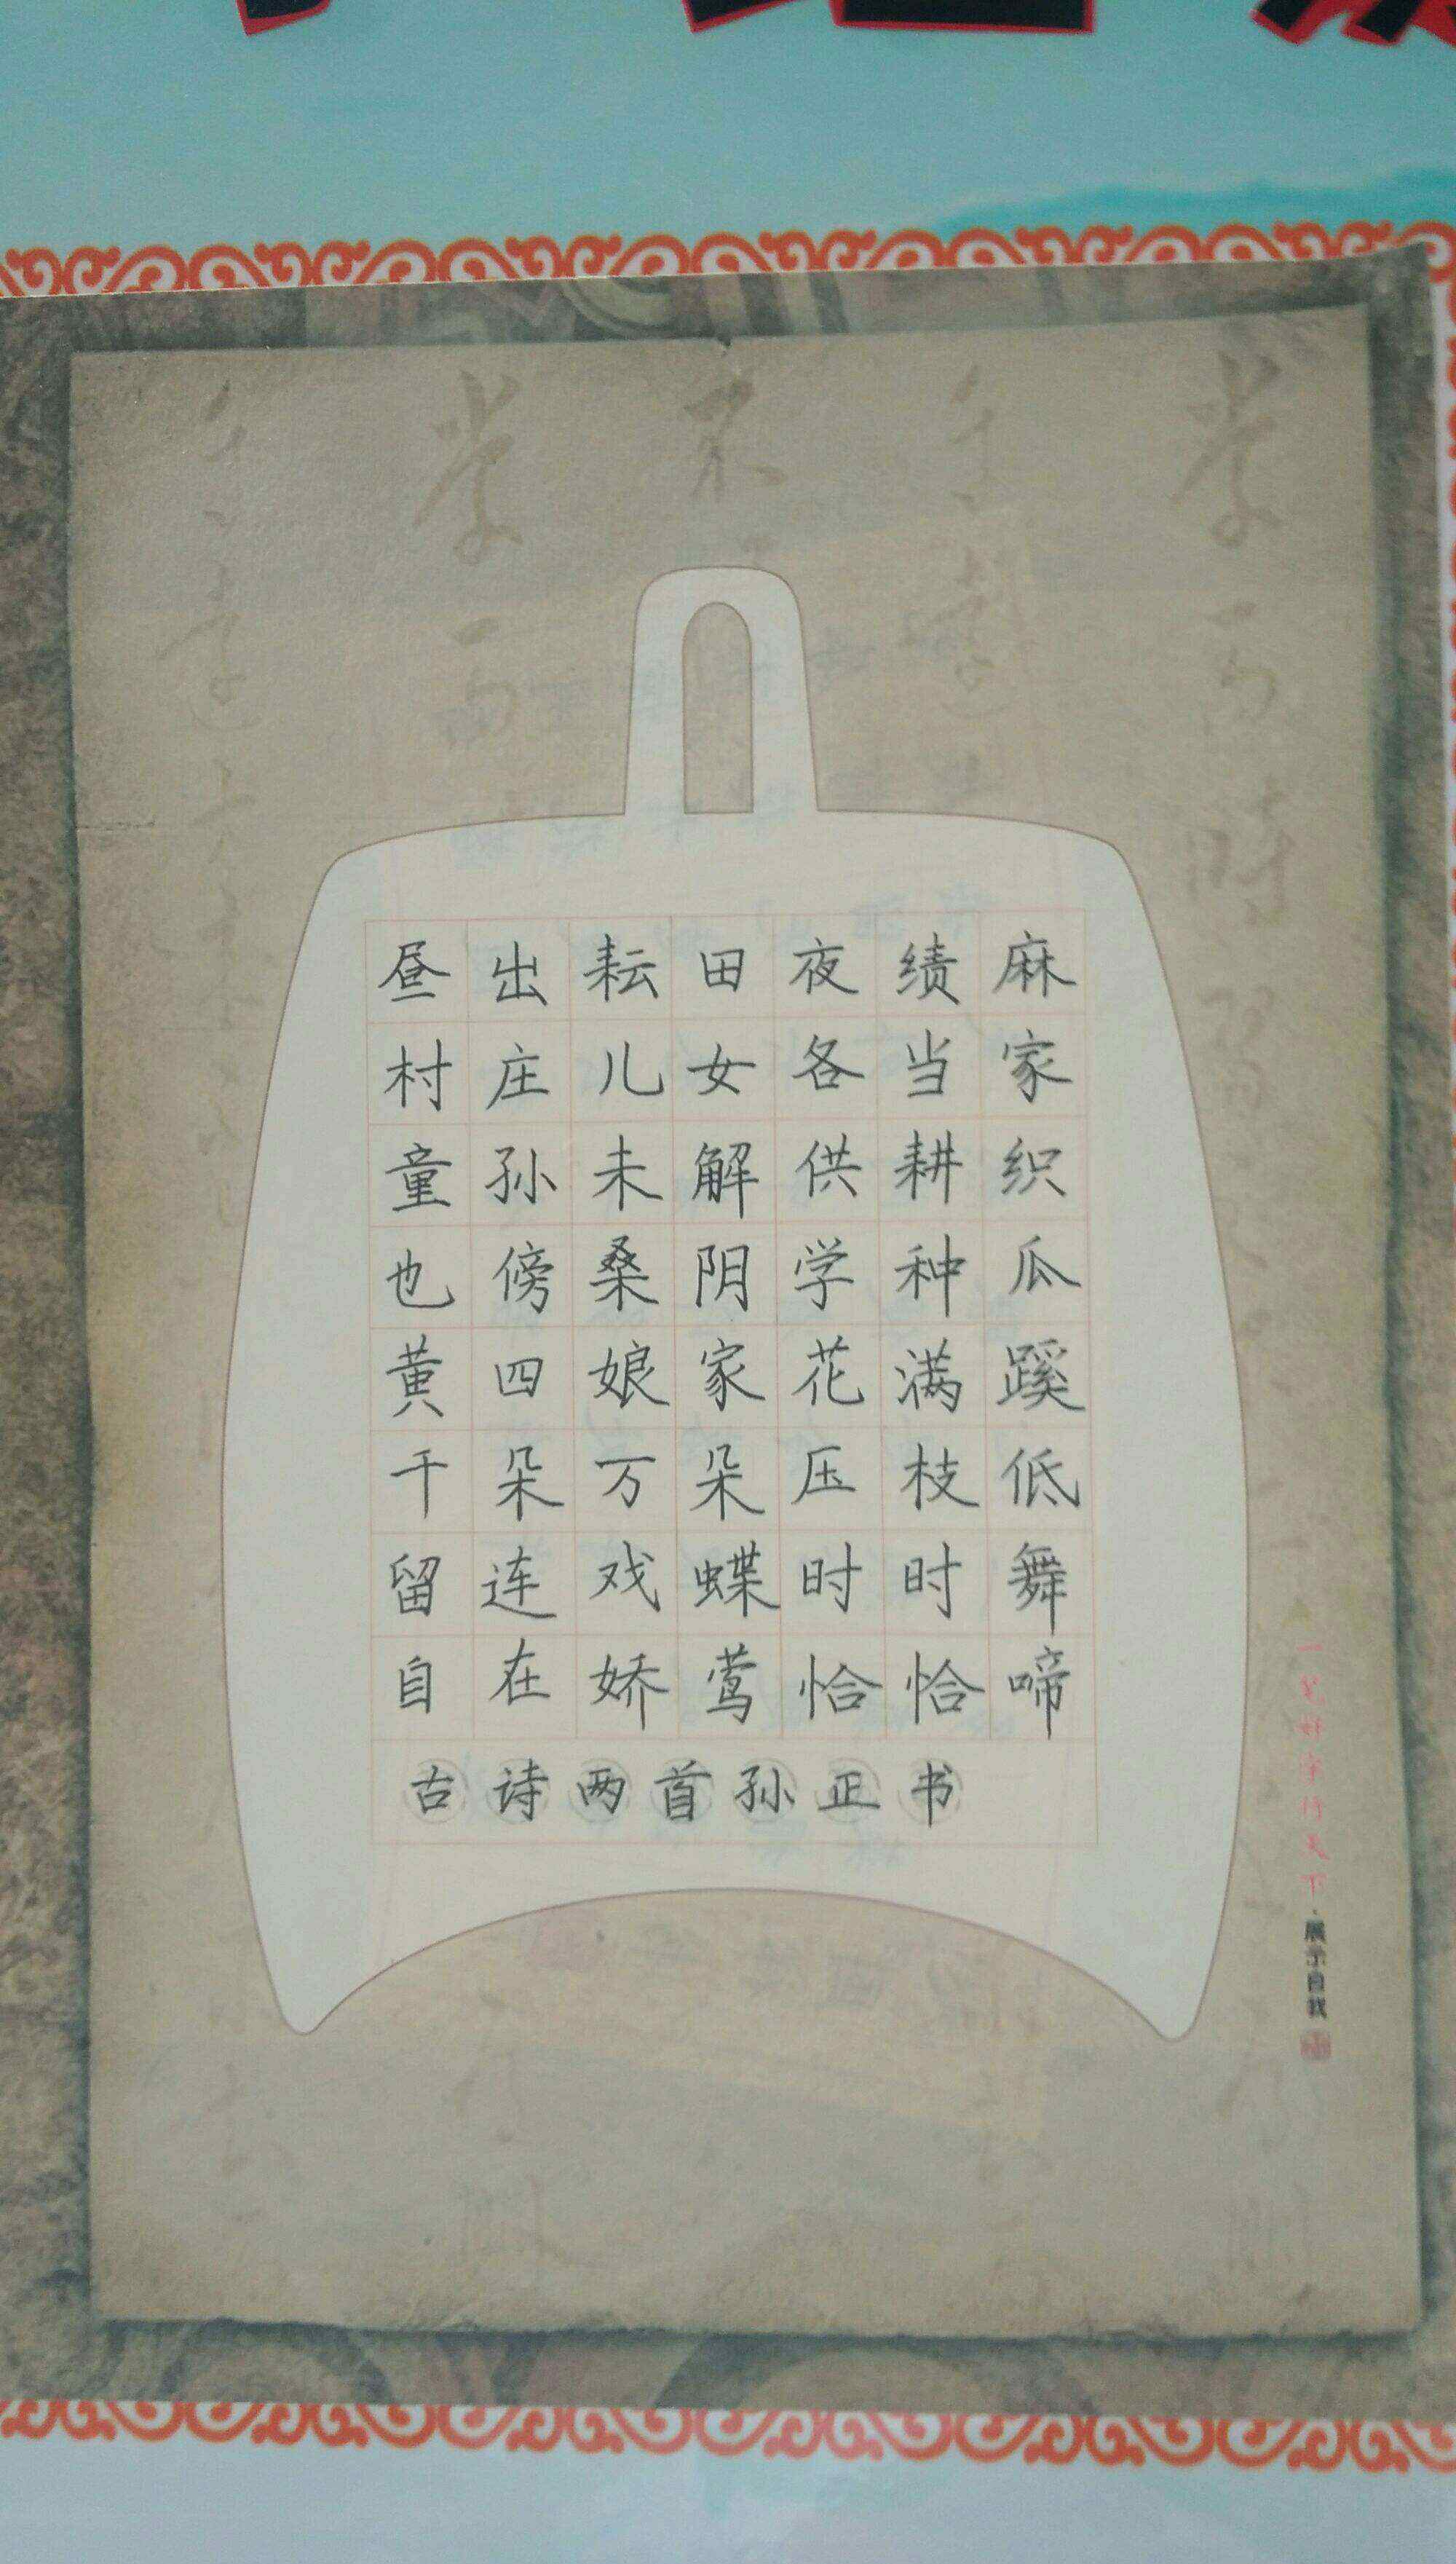 昼出耘田夜绩麻
村庄儿女各当家
童孙未解供耕织
也傍桑阴学种瓜
黄四娘家花满蹊
千朵万朵压枝低
留连戏蝶时时舞
自在娇莺恰恰啼
古诗两首孙正书
一笔好字行天下·展示自我